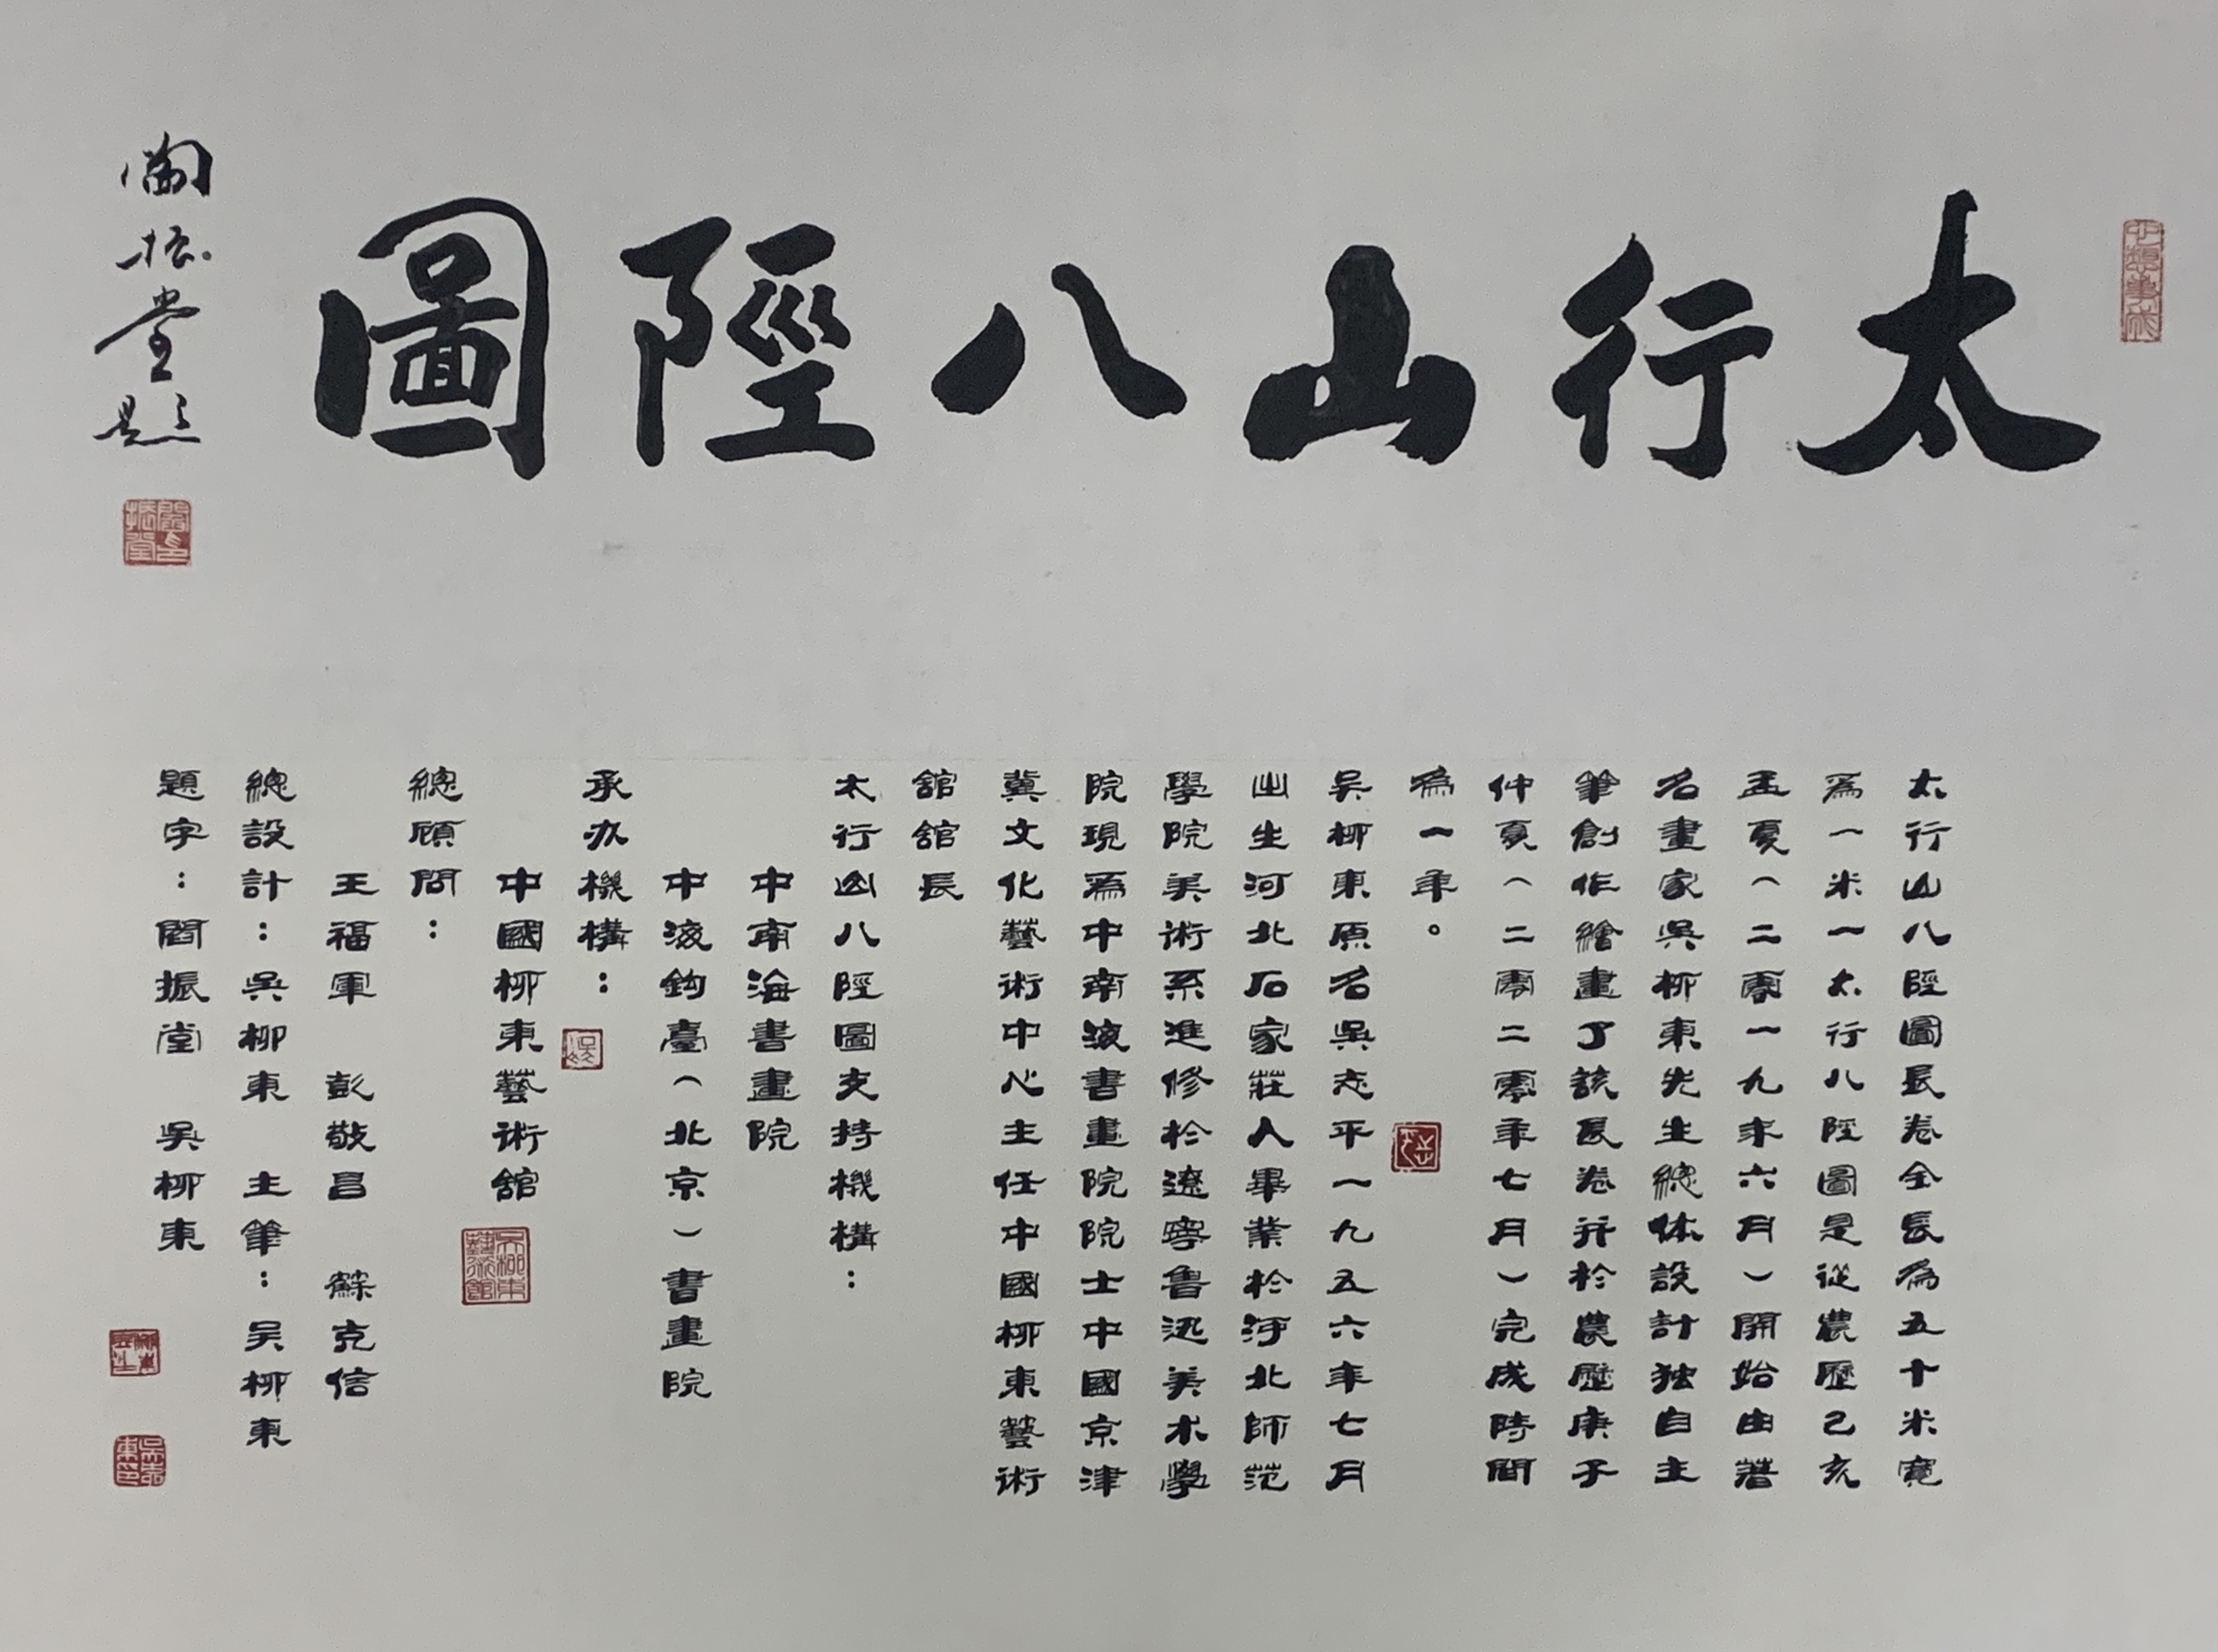 太行山八陘圖
閻振堂題
太行山八陘圖長卷全長為五十米寬
為一米一太行八陘圖是從農歷己亥
孟夏（二零一九年六月）開始由著
名畫家吳柳東先生總体設計独自主
筆創作繪畫了該長卷并於農歷庚子
仲夏（二零二零年七月）完成時間
為一年。
吳柳東原名吳志平一九五六年七月
出生河北石家莊人畢業於河北師范
學院美術系進修於遼寧魯迅美术學
院現為中南海書畫院院士中國京津
冀文化藝術中心主任中國柳東藝術
舘舘長
太行山八陘圖支持機構：
中南海書畫院
中海釣臺（北京）書畫院
承办機構：
中國柳東藝術舘
總顧問：
王福軍 彭敬昌 蘇克信
總設計：吳柳東 主筆：吴柳東
題字：閻振堂 吳柳東